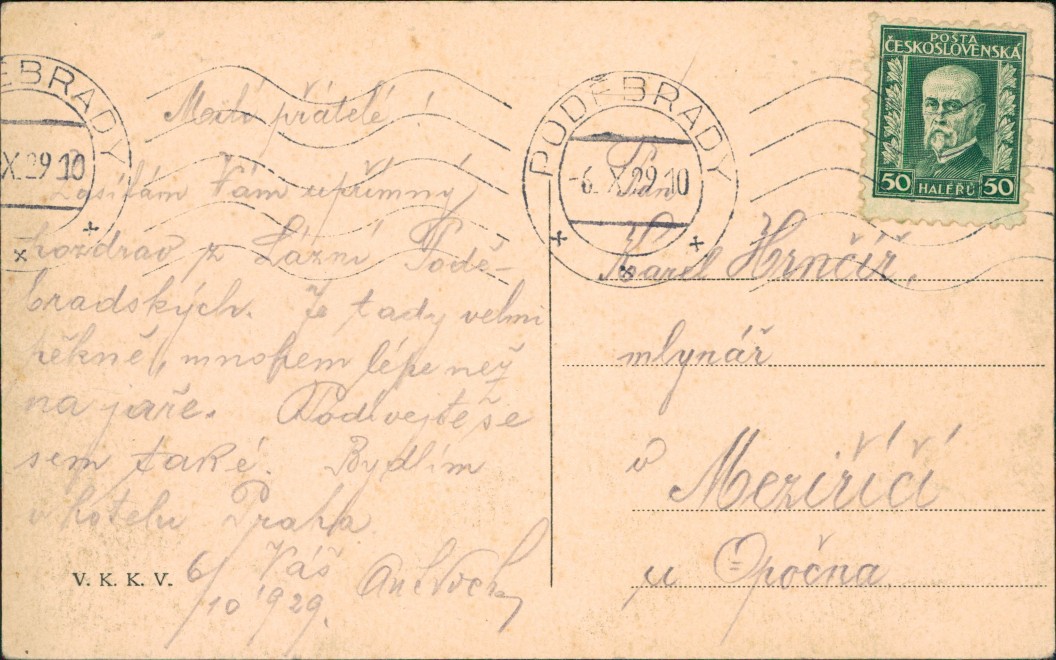 Milí přátelé!
Zasílám Vám upřímný
pozdrav z Lázní Podě-
bradských. Je tady velmi
pěkně, mnohem lépe než
na jaře. Podívejte se
sem také. Bydlím
v hotelu Praha
Váš
6/10 1929.
V. K. K. V.
PODĚBRADY
X.29 10
PODĚBRADY
-6. X. 29 10
POŠTA
ČESKOSLOVENSKÁ
50 HALÉŘŮ 50
Pan
Karel Hrnčíř,
mlynář
v Meziříčí
u Opočna